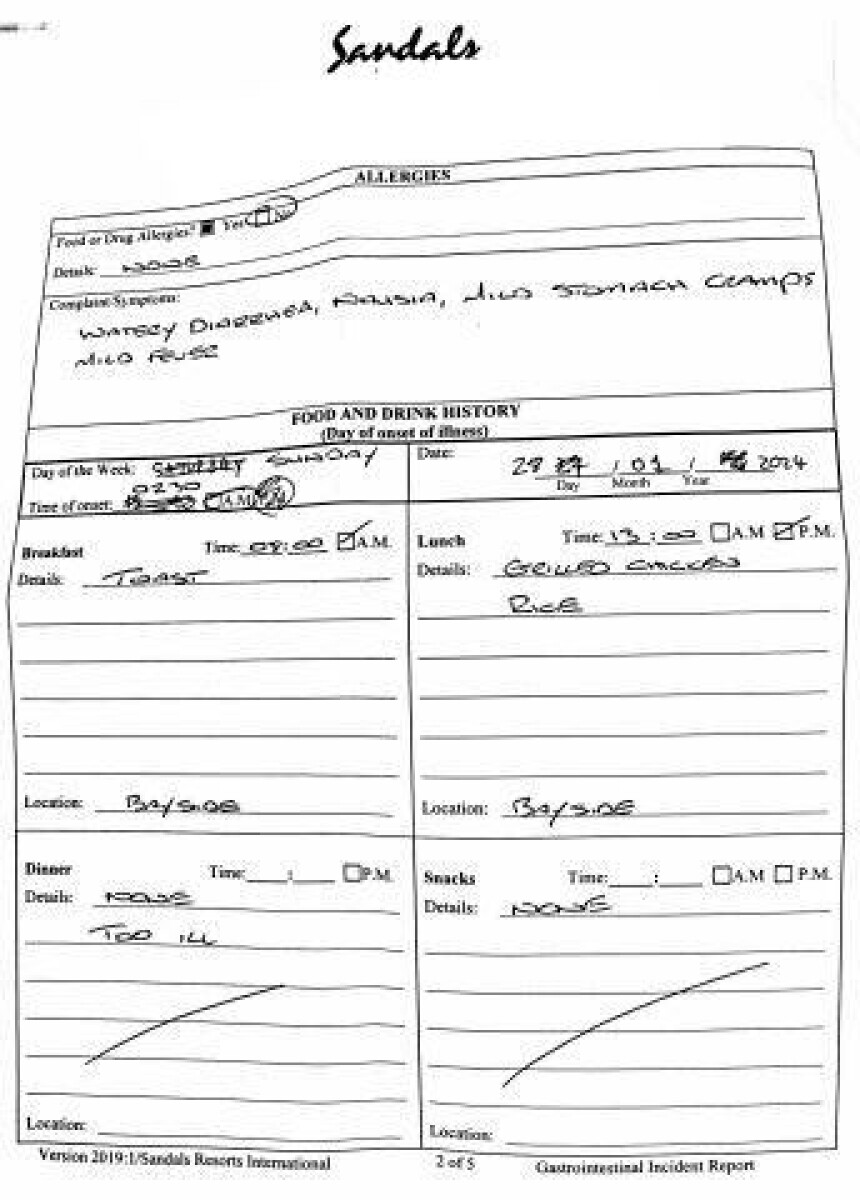 Sandals
ALLERGIES
Food or Drug Allergies? Yes No
Details: NONE
Complaint/Symptoms:
WATERY DIARRHEA, NAUSIA, MILD STOMACH CRAMPS
MILD FEVER
FOOD AND DRINK HISTORY
(Day of onset of illness)
Day of the Week: SUNDAY
Date: 28 / 01 / 2024
Day Month Year
0230
Time of onset: A.M P.M
Breakfast Time: 08:00 A.M.
Details: TOAST
Location: BAYSIDE
Lunch Time: 13:00 A.M P.M.
Details: GRILLED CHICKEN
RICE
Location: BAYSIDE
Dinner Time: : P.M.
Details: NONE
TOO ILL
Location:
Snacks Time: : A.M P.M.
Details: NONE
Location:
Version 2019:1/Sandals Resorts International 2 of 5 Gastrointestinal Incident Report